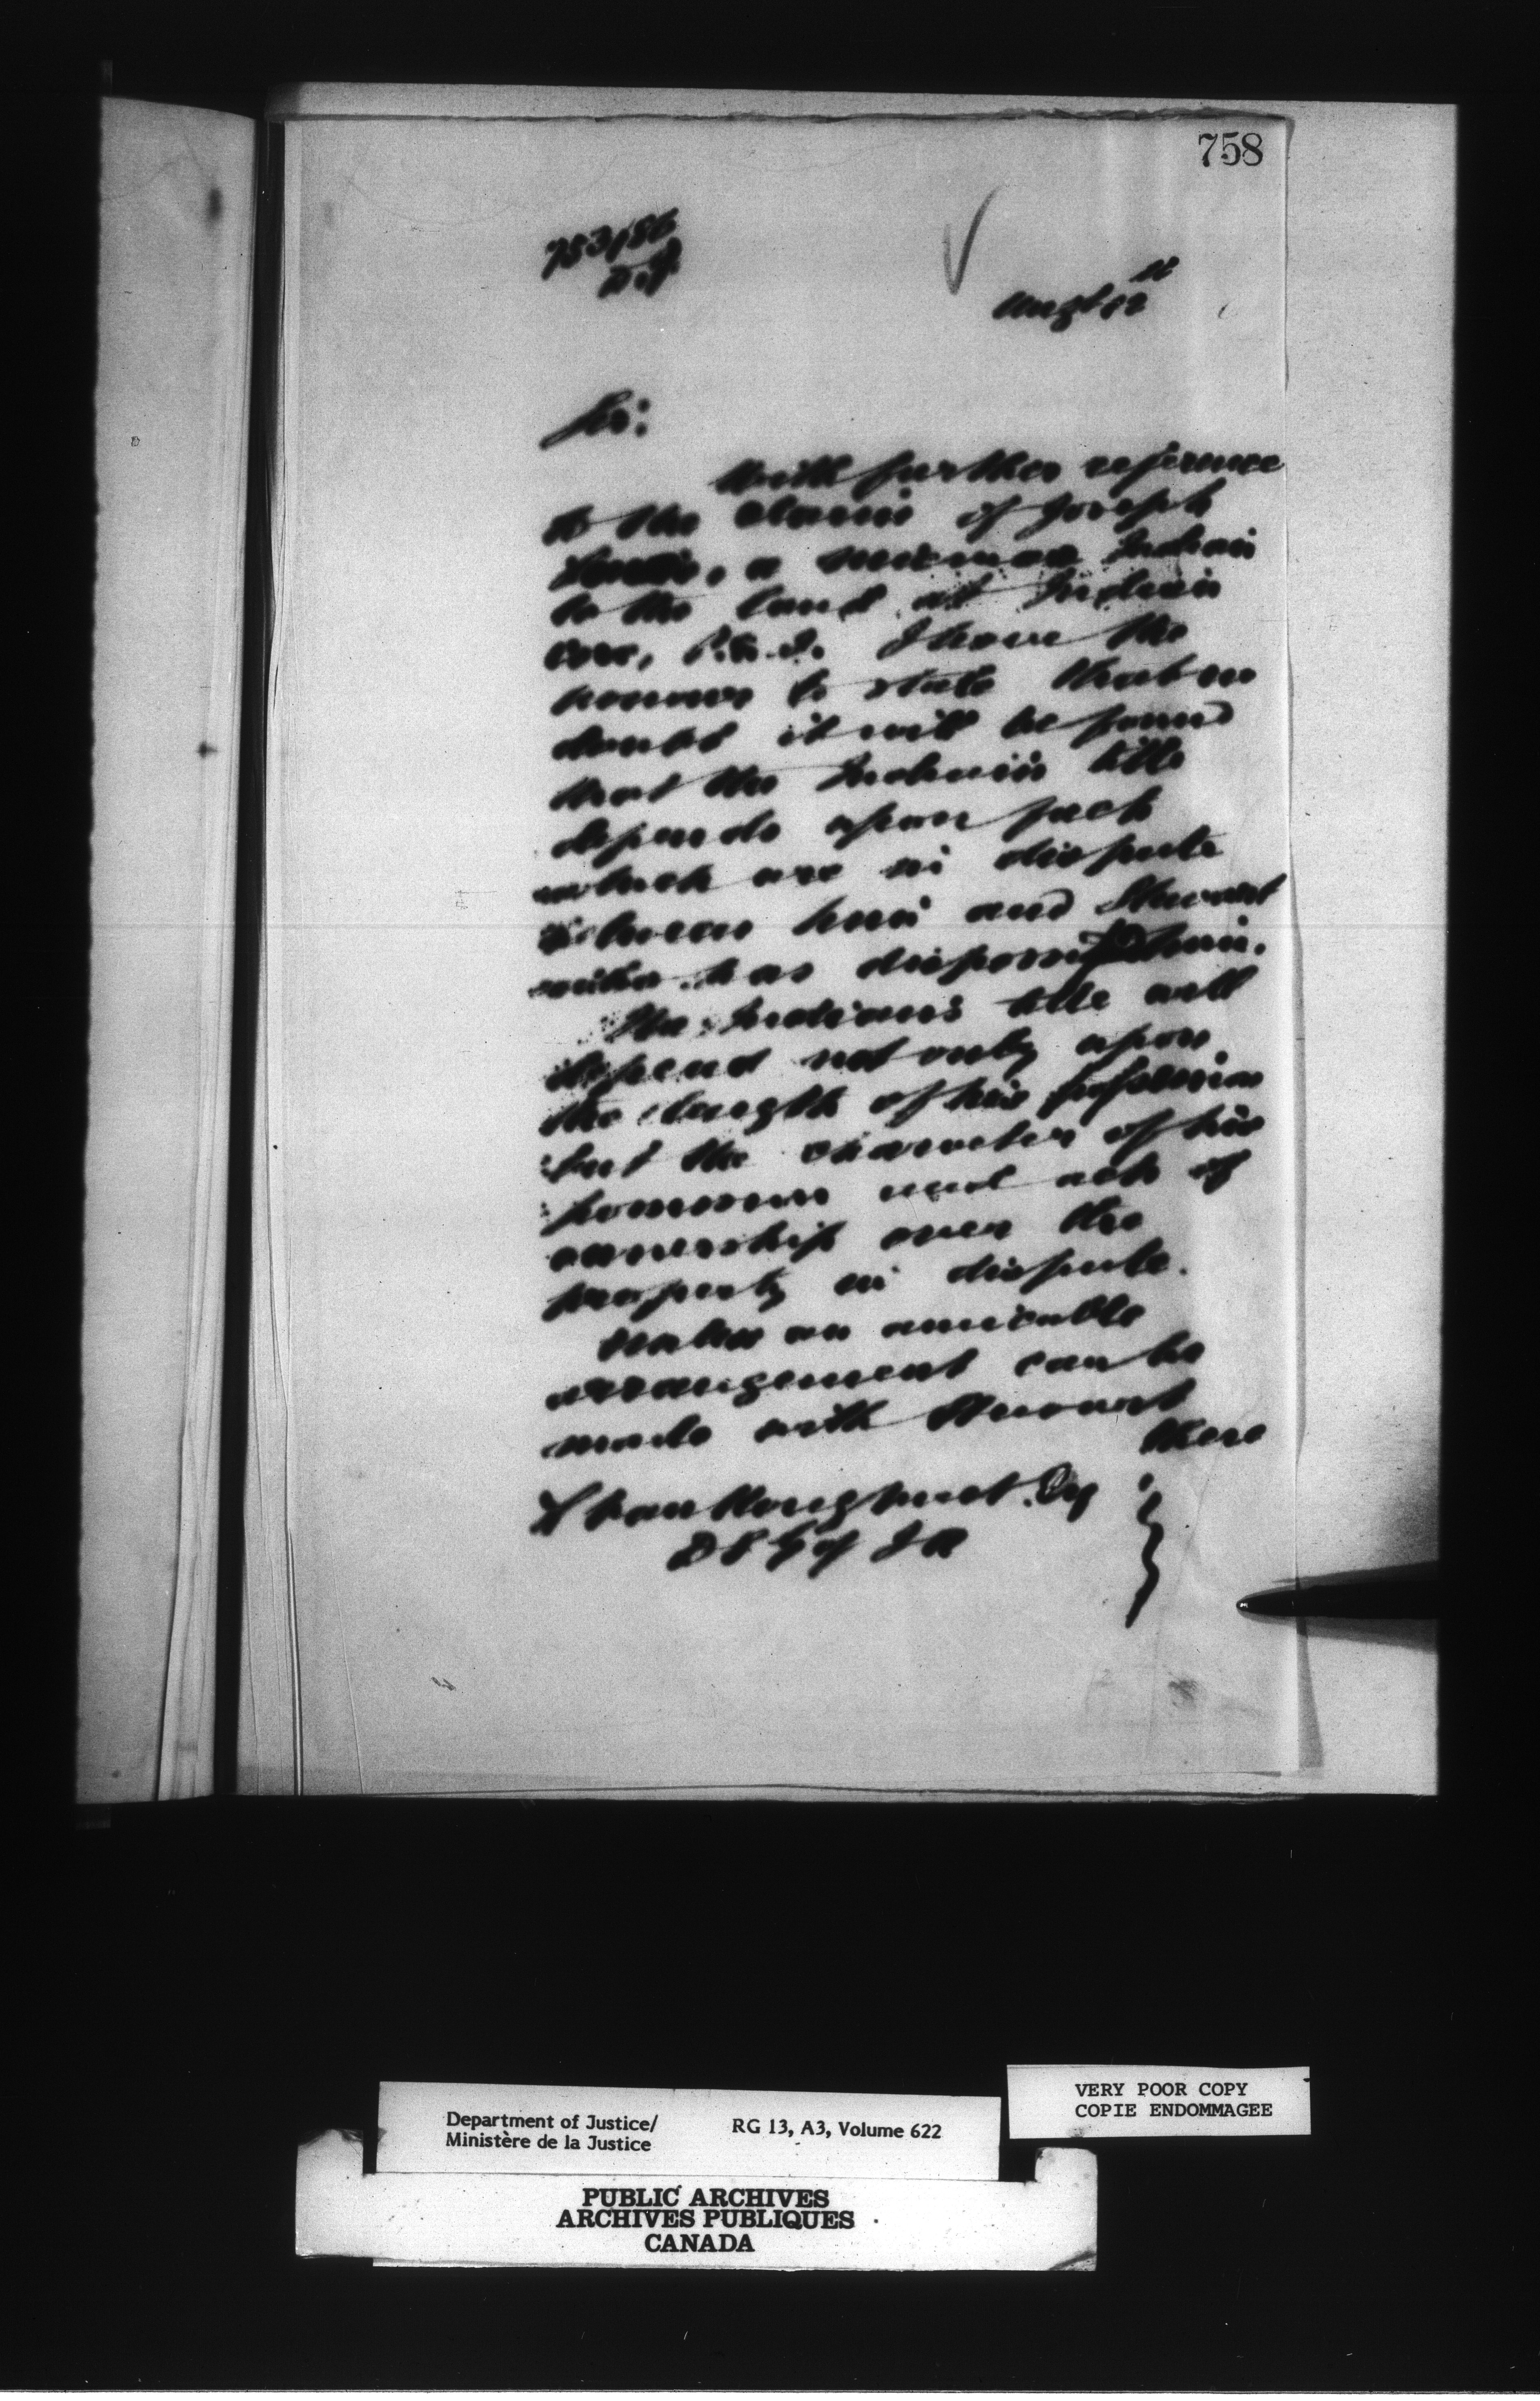 758
753/86
Augt 12th
Sir:
With further reference
to the claim of Joseph
a micmac Indian
to the land at Indian
Cove, P.E.I. I have the
honour to state that no
doubt it will be found
that the Indian's title
depends upon facts
which are in dispute
between him and Stewart
who has dispossessed him.
The Indian's title will
depend not only upon
the length of his possession
but the character of his
possession and acts of
ownership over the
property in dispute.
Unless an amicable
arrangement can be
made with Stewart
there
L VanKoughnet Esq
D S G of I A
VERY POOR COPY
COPIE ENDOMMAGEE
Department of Justice/
Ministère de la Justice
RG 13, A3, Volume 622
PUBLIC ARCHIVES
ARCHIVES PUBLIQUES
CANADA